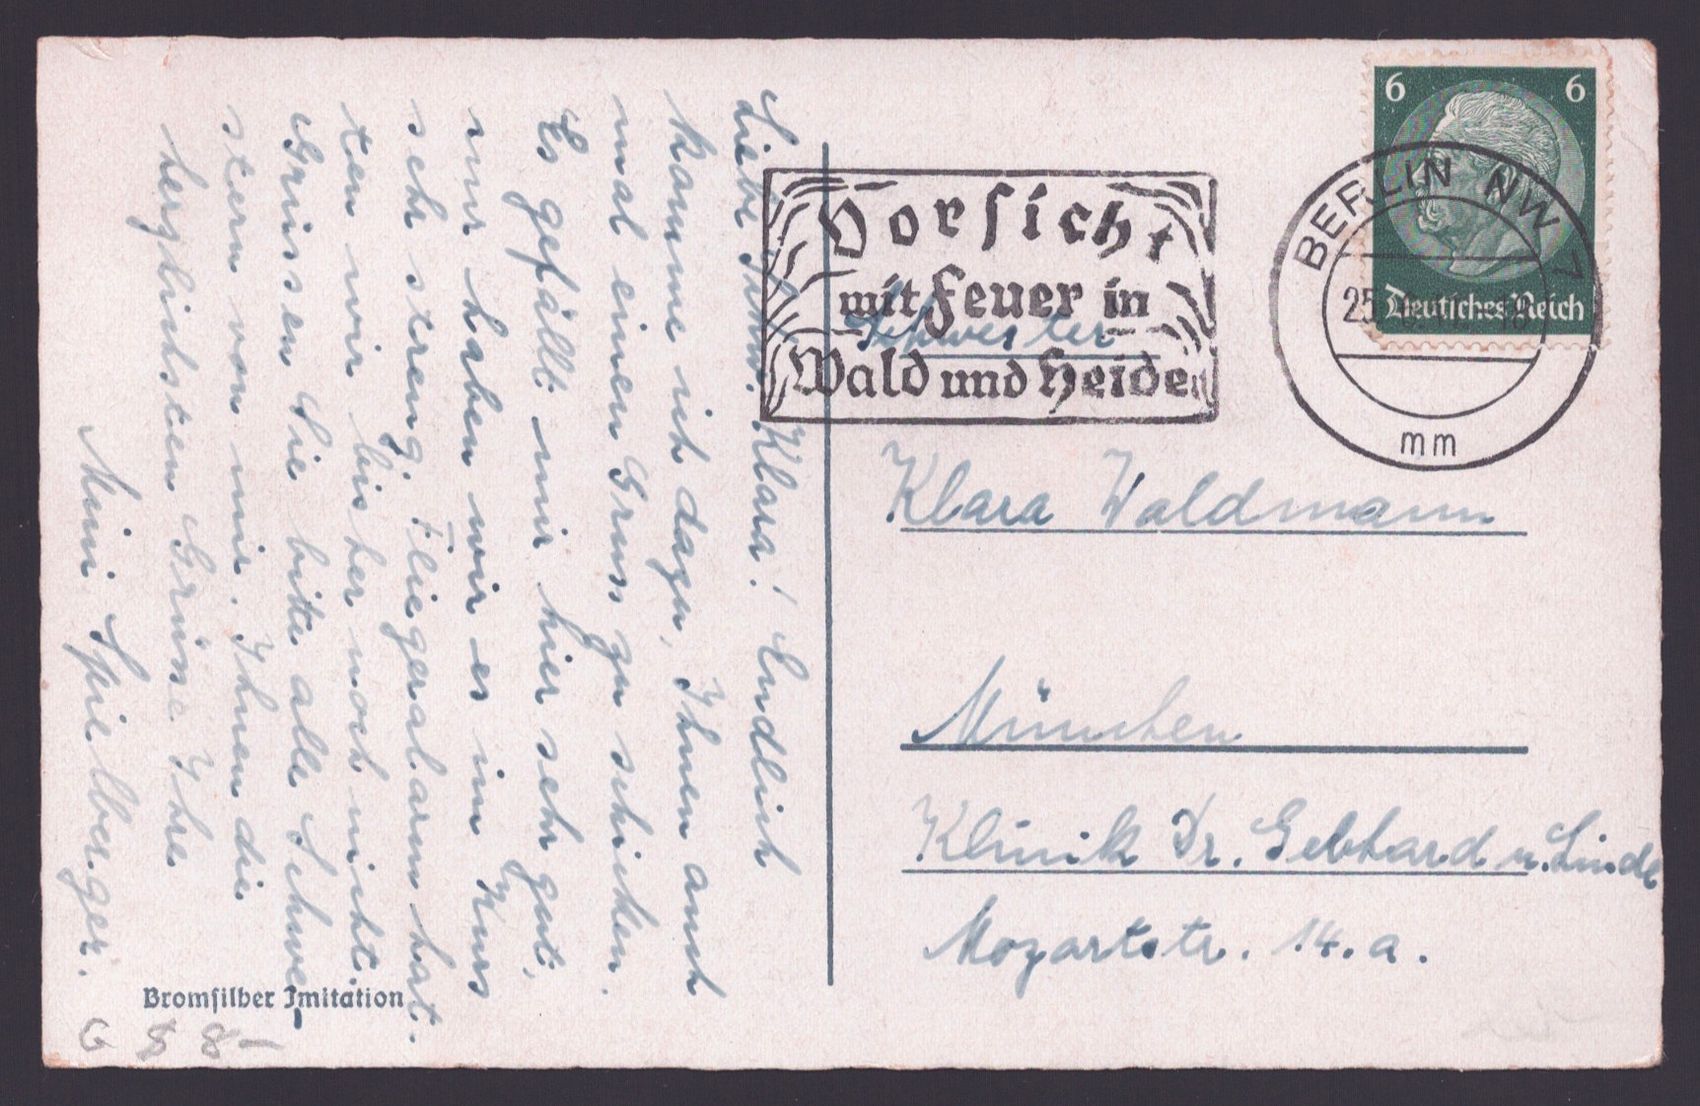 Liebe Schw. Klara! Endlich
komme ich dazu, Ihnen auch
mal einen Gruss zu schicken.
Es gefällt mir hier sehr gut,
nur haben wir es im Kurs
sehr streng. Fliegeralarm hat-
ten wir bisher noch nicht.
Grüssen Sie bitte alle Schwe-
stern von mir. Ihnen die
herzlichsten Grüsse Ihre
Mimi Spielberger.
Bromsilber Imitation
G 8 8-
6 6
Deutsches Reich
BERLIN NW 7
25
mm
Vorsicht
mit Feuer in
Wald und Heide
Schwester
Klara Waldmann
München
Klinik Dr. Gebhard u. Linde
Mozartstr. 14.a.